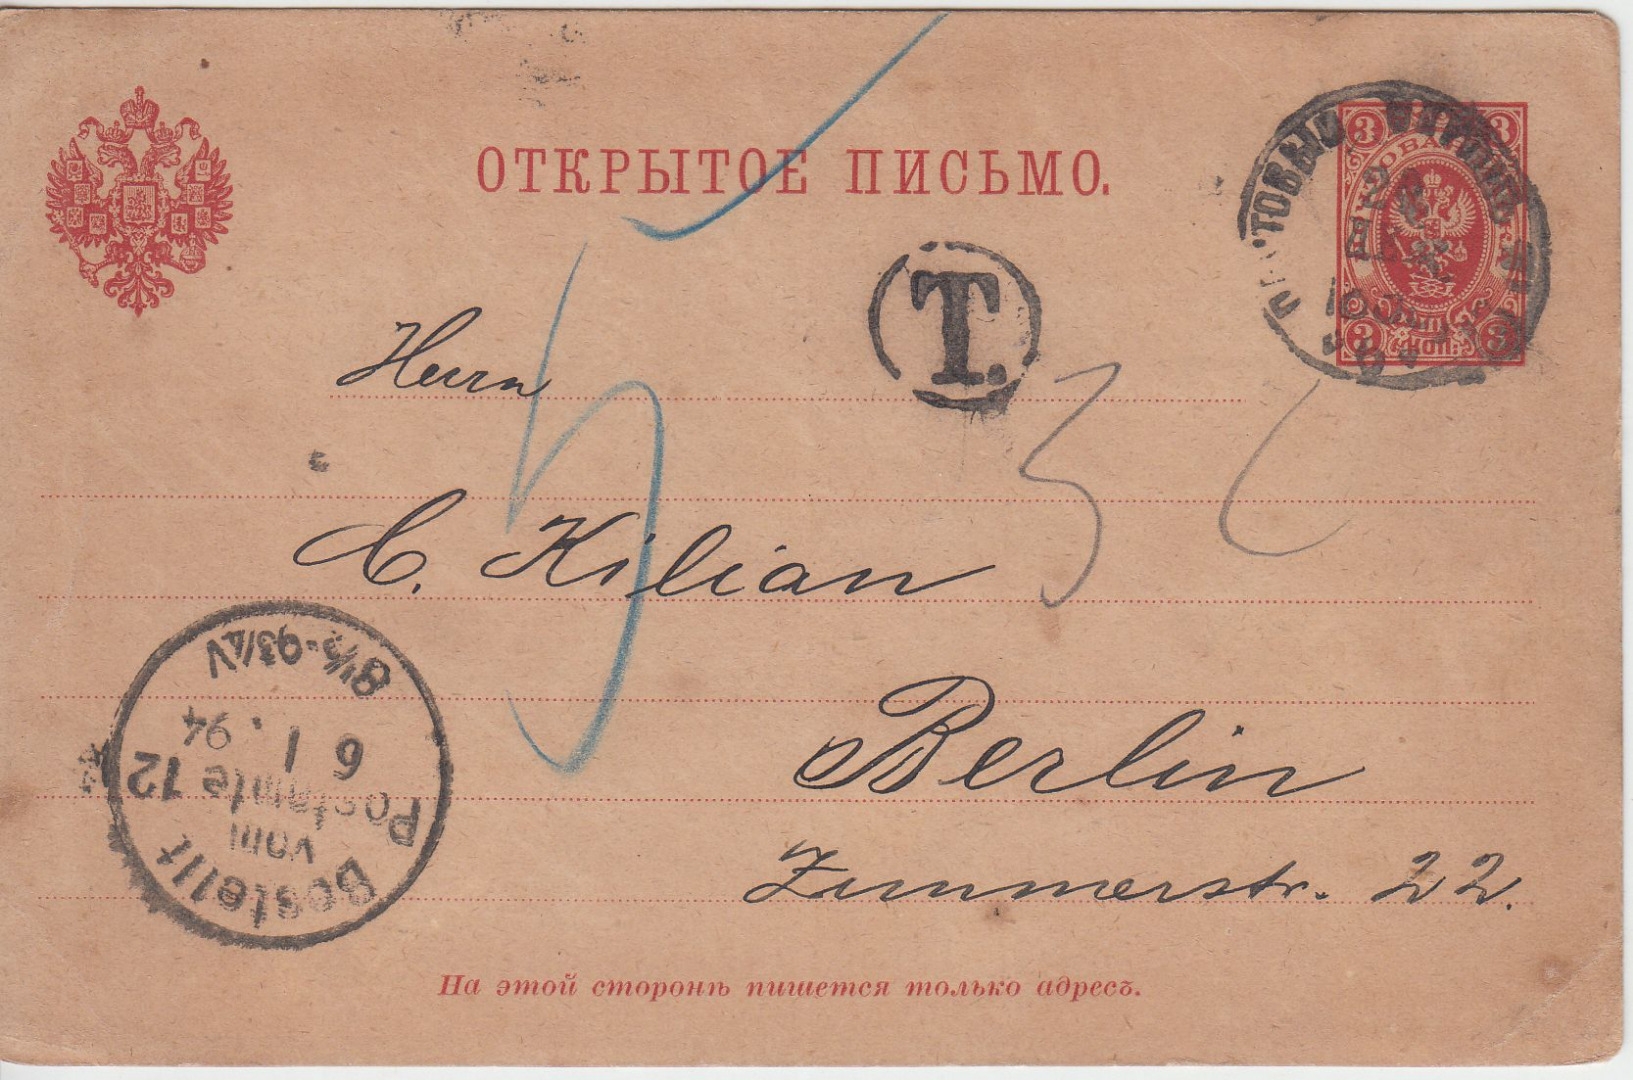 ОТКРЫТОЕ ПИСЬМО.
3 3
3 КОП. 3
T.
5
3
Herrn
C. Kilian
Berlin
Zimmerstr. 22.
Bestellt
vom
Postamte 12
6 1 . 94
8½-9¾V
На этой сторонѣ пишется только адресъ.